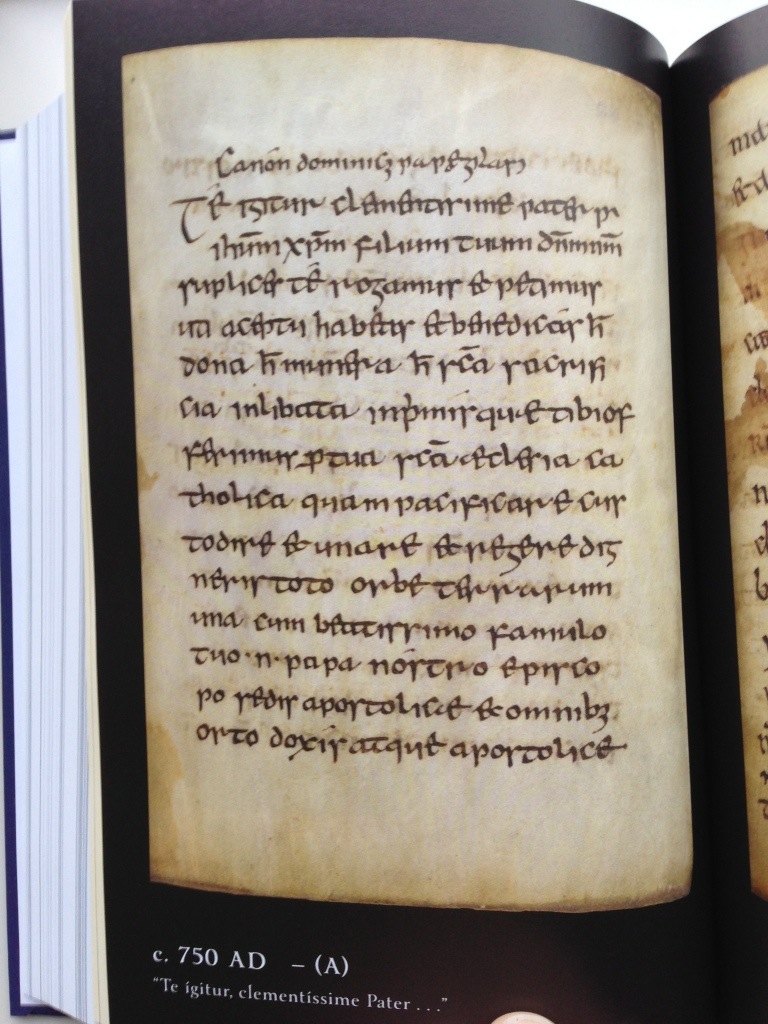 Canon dominicus papae gilasi
Te igitur clementissime pater p
ihm xpm filium tuum dnm nm
suplices te rogamus et petimus
uti acepta habeas et benedicas h
dona h munera h sca sacrifi
cia inlibata inprimis que tibi of
ferimus p tua sca aeclesia ca
tholica quam pacificare cus
todire et unare et regere dig
neris toto orbe terrarum
una cum beatissimo famulo
tuo · n · papa nostro episco
po sedis apostolice et omnibȝ
orto doxis atque apostolice
c. 750 AD – (A)
"Te ígitur, clementíssime Pater . . ."